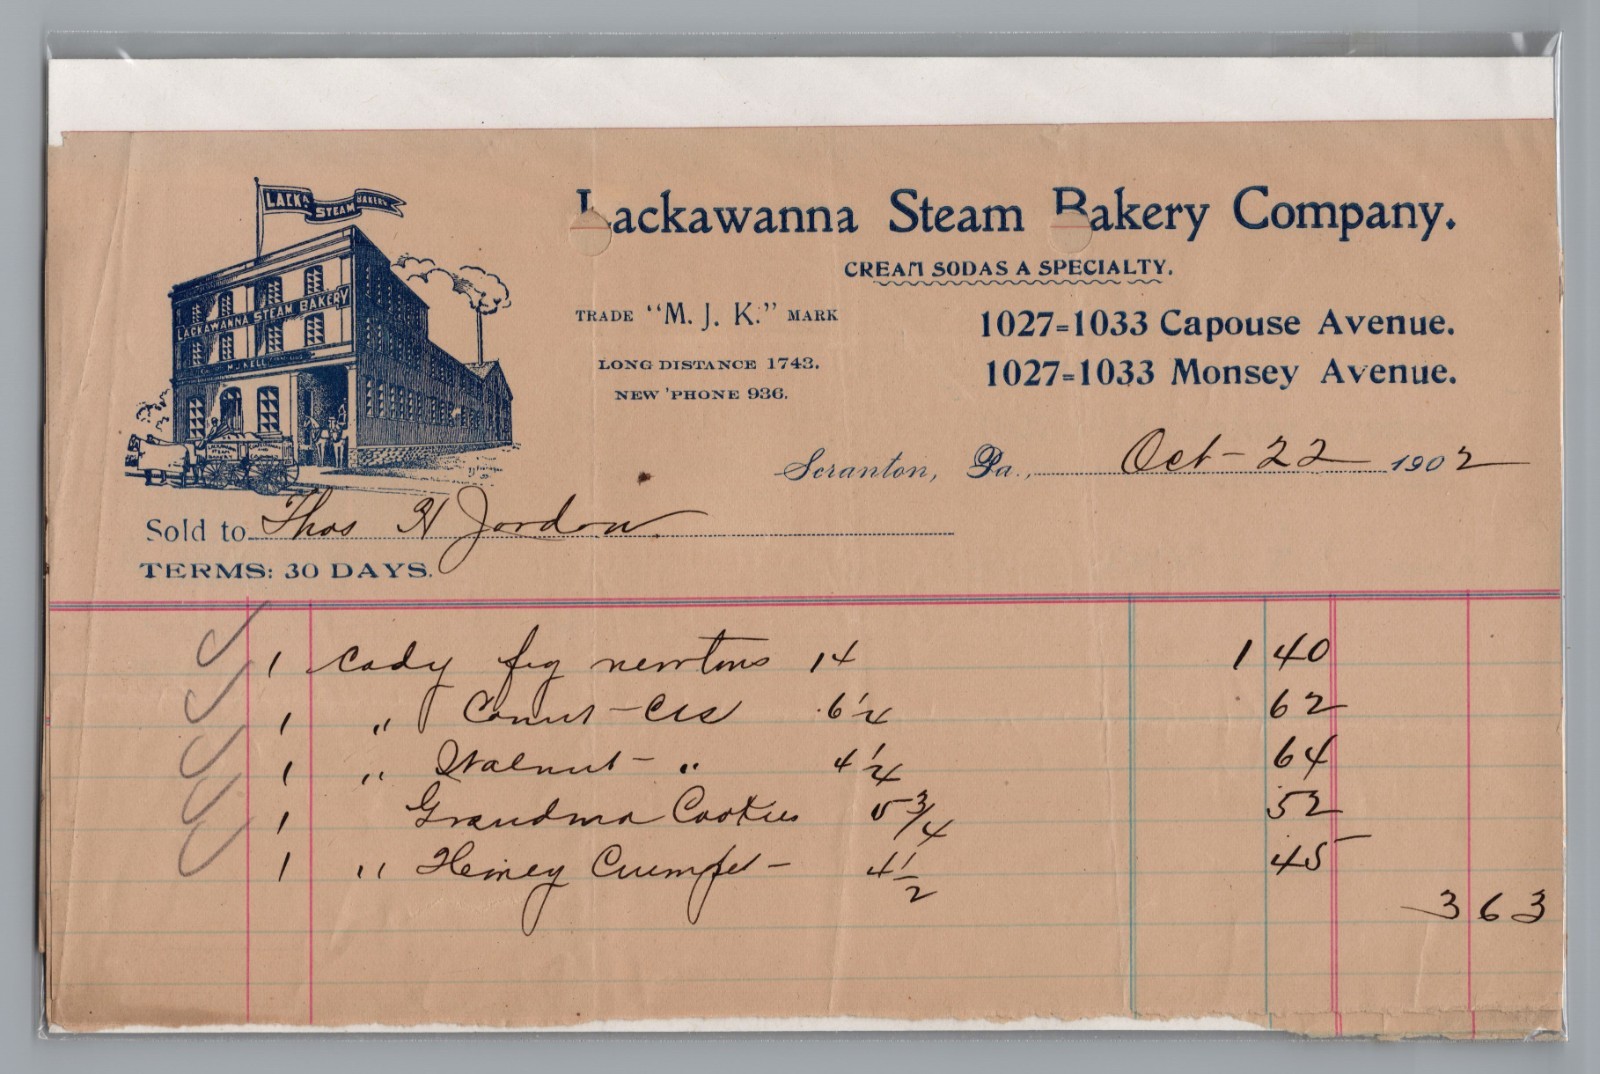 LACKA. STEAM BAKERY
LACKAWANNA STEAM BAKERY
Lackawanna Steam Bakery Company.
CREAM SODAS A SPECIALTY.
TRADE "M. J. K." MARK
LONG DISTANCE 1743.
NEW 'PHONE 936.
1027=1033 Capouse Avenue.
1027=1033 Monsey Avenue.
Scranton, Pa., Oct - 22 1902
Sold to Thos H Jordan
TERMS: 30 DAYS.
1 Cady fig newtons 14 1 40
1 " 6 1/4 62
1 " Walnut - " 4 1/4 64
1 Grandma Cookies 5 3/4 52
1 " Crumpet - 4 1/2 45
3 63